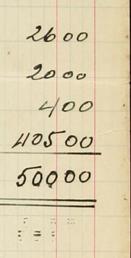 26 00
20 00
4 00
405 00
500 00